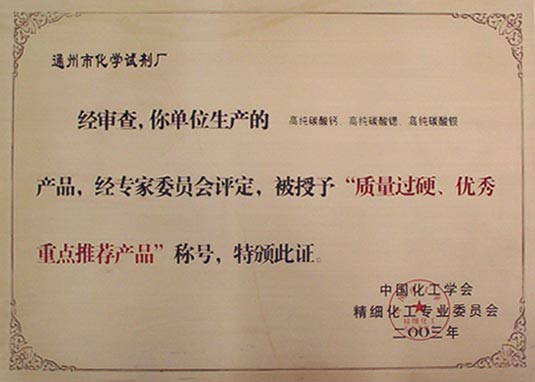 通州市化学试剂厂
经审查，你单位生产的 高纯碳酸钙、高纯碳酸锶、高纯碳酸钡
产品，经专家委员会评定，被授予“质量过硬、优秀
重点推荐产品”称号，特颁此证。
中国化工学会
精细化工专业委员会
二〇〇三年